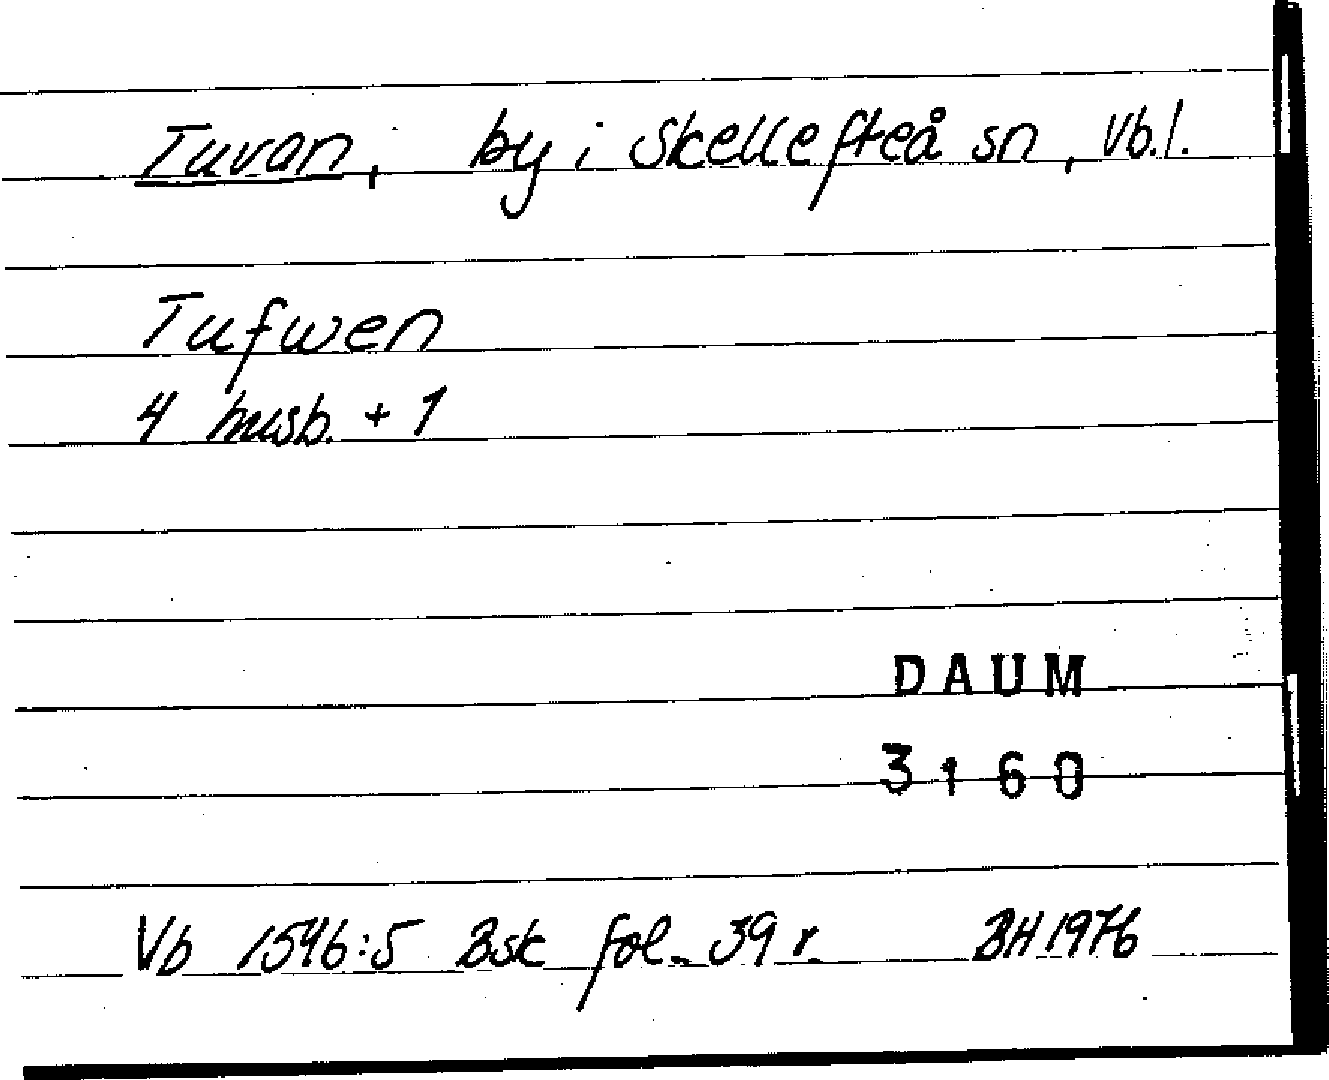 Tuvan, by i Skellefteå sn, Vb.l.
Tufwen
4 husb. + 1
DAUM
3160
Vb 1546:5 Bsk fol. 39 r. BH 1976